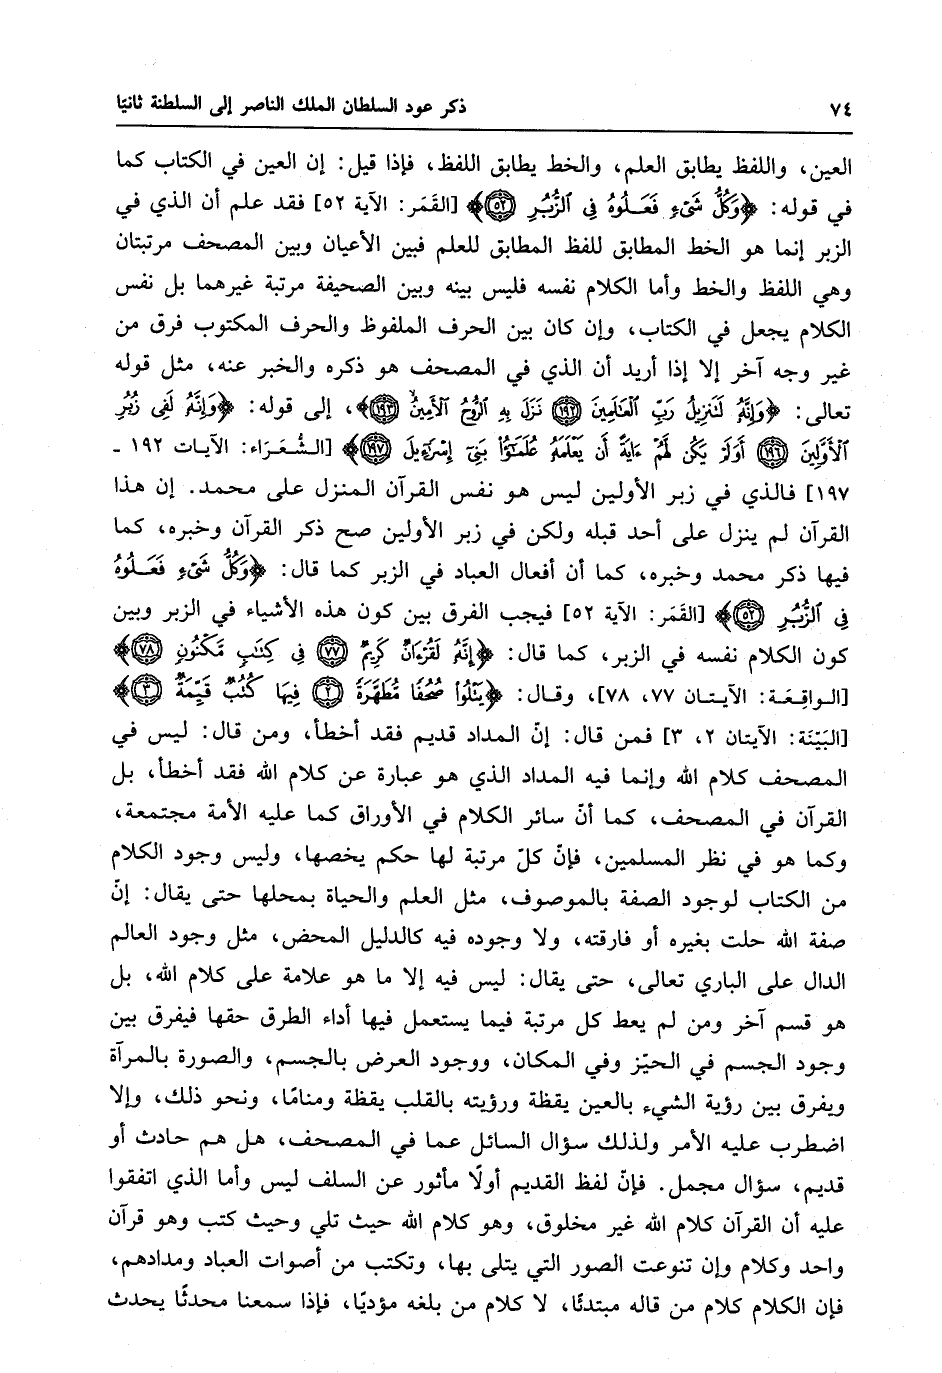 ٧٤ ذكر عود السلطان الملك الناصر إلى السلطنة ثانيًا
العين، واللفظ يطابق العلم، والخط يطابق اللفظ، فإذا قيل: إن العين في الكتاب كما
في قوله: ﴿وَكُلُّ شَيْءٍ فَعَلُوهُ فِي الزُّبُرِ ﴿٥٢﴾﴾ [القَمَر: الآية ٥٢] فقد علم أن الذي في
الزبر إنما هو الخط المطابق للفظ المطابق للعلم فبين الأعيان وبين المصحف مرتبتان
وهي اللفظ والخط وأما الكلام نفسه فليس بينه وبين الصحيفة مرتبة غيرهما بل نفس
الكلام يجعل في الكتاب، وإن كان بين الحرف الملفوظ والحرف المكتوب فرق من
غير وجه آخر إلا إذا أريد أن الذي في المصحف هو ذكره والخبر عنه، مثل قوله
تعالى: ﴿وَإِنَّهُ لَتَنزِيلُ رَبِّ الْعَالَمِينَ ﴿١٩٢﴾ نَزَلَ بِهِ الرُّوحُ الْأَمِينُ ﴿١٩٣﴾﴾، إلى قوله: ﴿وَإِنَّهُ لَفِي زُبُرِ
الْأَوَّلِينَ ﴿١٩٦﴾ أَوَلَمْ يَكُن لَّهُمْ ءَايَةً أَن يَعْلَمَهُ عُلَمَٰٓؤُا بَنِيٓ إِسْرَٰٓءِيلَ ﴿١٩٧﴾﴾ [الشُّعَرَاء: الآيات ١٩٢ ـ
١٩٧] فالذي في زبر الأولين ليس هو نفس القرآن المنزل على محمد. إن هذا
القرآن لم ينزل على أحد قبله ولكن في زبر الأولين صح ذكر القرآن وخبره، كما
فيها ذكر محمد وخبره، كما أن أفعال العباد في الزبر كما قال: ﴿وَكُلُّ شَيْءٍ فَعَلُوهُ
فِي الزُّبُرِ ﴿٥٢﴾﴾ [القَمَر: الآية ٥٢] فيجب الفرق بين كون هذه الأشياء في الزبر وبين
كون الكلام نفسه في الزبر، كما قال: ﴿إِنَّهُ لَقُرْءَانٌ كَرِيمٌ ﴿٧٧﴾ فِي كِتَٰبٍ مَّكْنُونٍ ﴿٧٨﴾﴾
[الواقِعَة: الآيتان ٧٧، ٧٨]، وقال: ﴿يَتْلُوا۟ صُحُفًا مُّطَهَّرَةً ﴿٢﴾ فِيهَا كُتُبٌ قَيِّمَةٌ ﴿٣﴾﴾
[البَيّنَة: الآيتان ٢، ٣] فمن قال: إنّ المداد قديم فقد أخطأ، ومن قال: ليس في
المصحف كلام الله وإنما فيه المداد الذي هو عبارة عن كلام الله فقد أخطأ، بل
القرآن في المصحف، كما أنّ سائر الكلام في الأوراق كما عليه الأمة مجتمعة،
وكما هو في نظر المسلمين، فإنّ كلّ مرتبة لها حكم يخصها، وليس وجود الكلام
من الكتاب لوجود الصفة بالموصوف، مثل العلم والحياة بمحلها حتى يقال: إنّ
صفة الله حلت بغيره أو فارقته، ولا وجوده فيه كالدليل المحض، مثل وجود العالم
الدال على الباري تعالى، حتى يقال: ليس فيه إلا ما هو علامة على كلام الله، بل
هو قسم آخر ومن لم يعط كل مرتبة فيما يستعمل فيها أداء الطرق حقها فيفرق بين
وجود الجسم في الحيّز وفي المكان، ووجود العرض بالجسم، والصورة بالمرآة
ويفرق بين رؤية الشيء بالعين يقظة ورؤيته بالقلب يقظة ومنامًا، ونحو ذلك، وإلا
اضطرب عليه الأمر ولذلك سؤال السائل عما في المصحف، هل هم حادث أو
قديم، سؤال مجمل. فإنّ لفظ القديم أولًا مأثور عن السلف ليس وأما الذي اتفقوا
عليه أن القرآن كلام الله غير مخلوق، وهو كلام الله حيث تلي وحيث كتب وهو قرآن
واحد وكلام وإن تنوعت الصور التي يتلى بها، وتكتب من أصوات العباد ومدادهم،
فإن الكلام كلام من قاله مبتدئًا، لا كلام من بلغه مؤديًا، فإذا سمعنا محدثًا يحدث